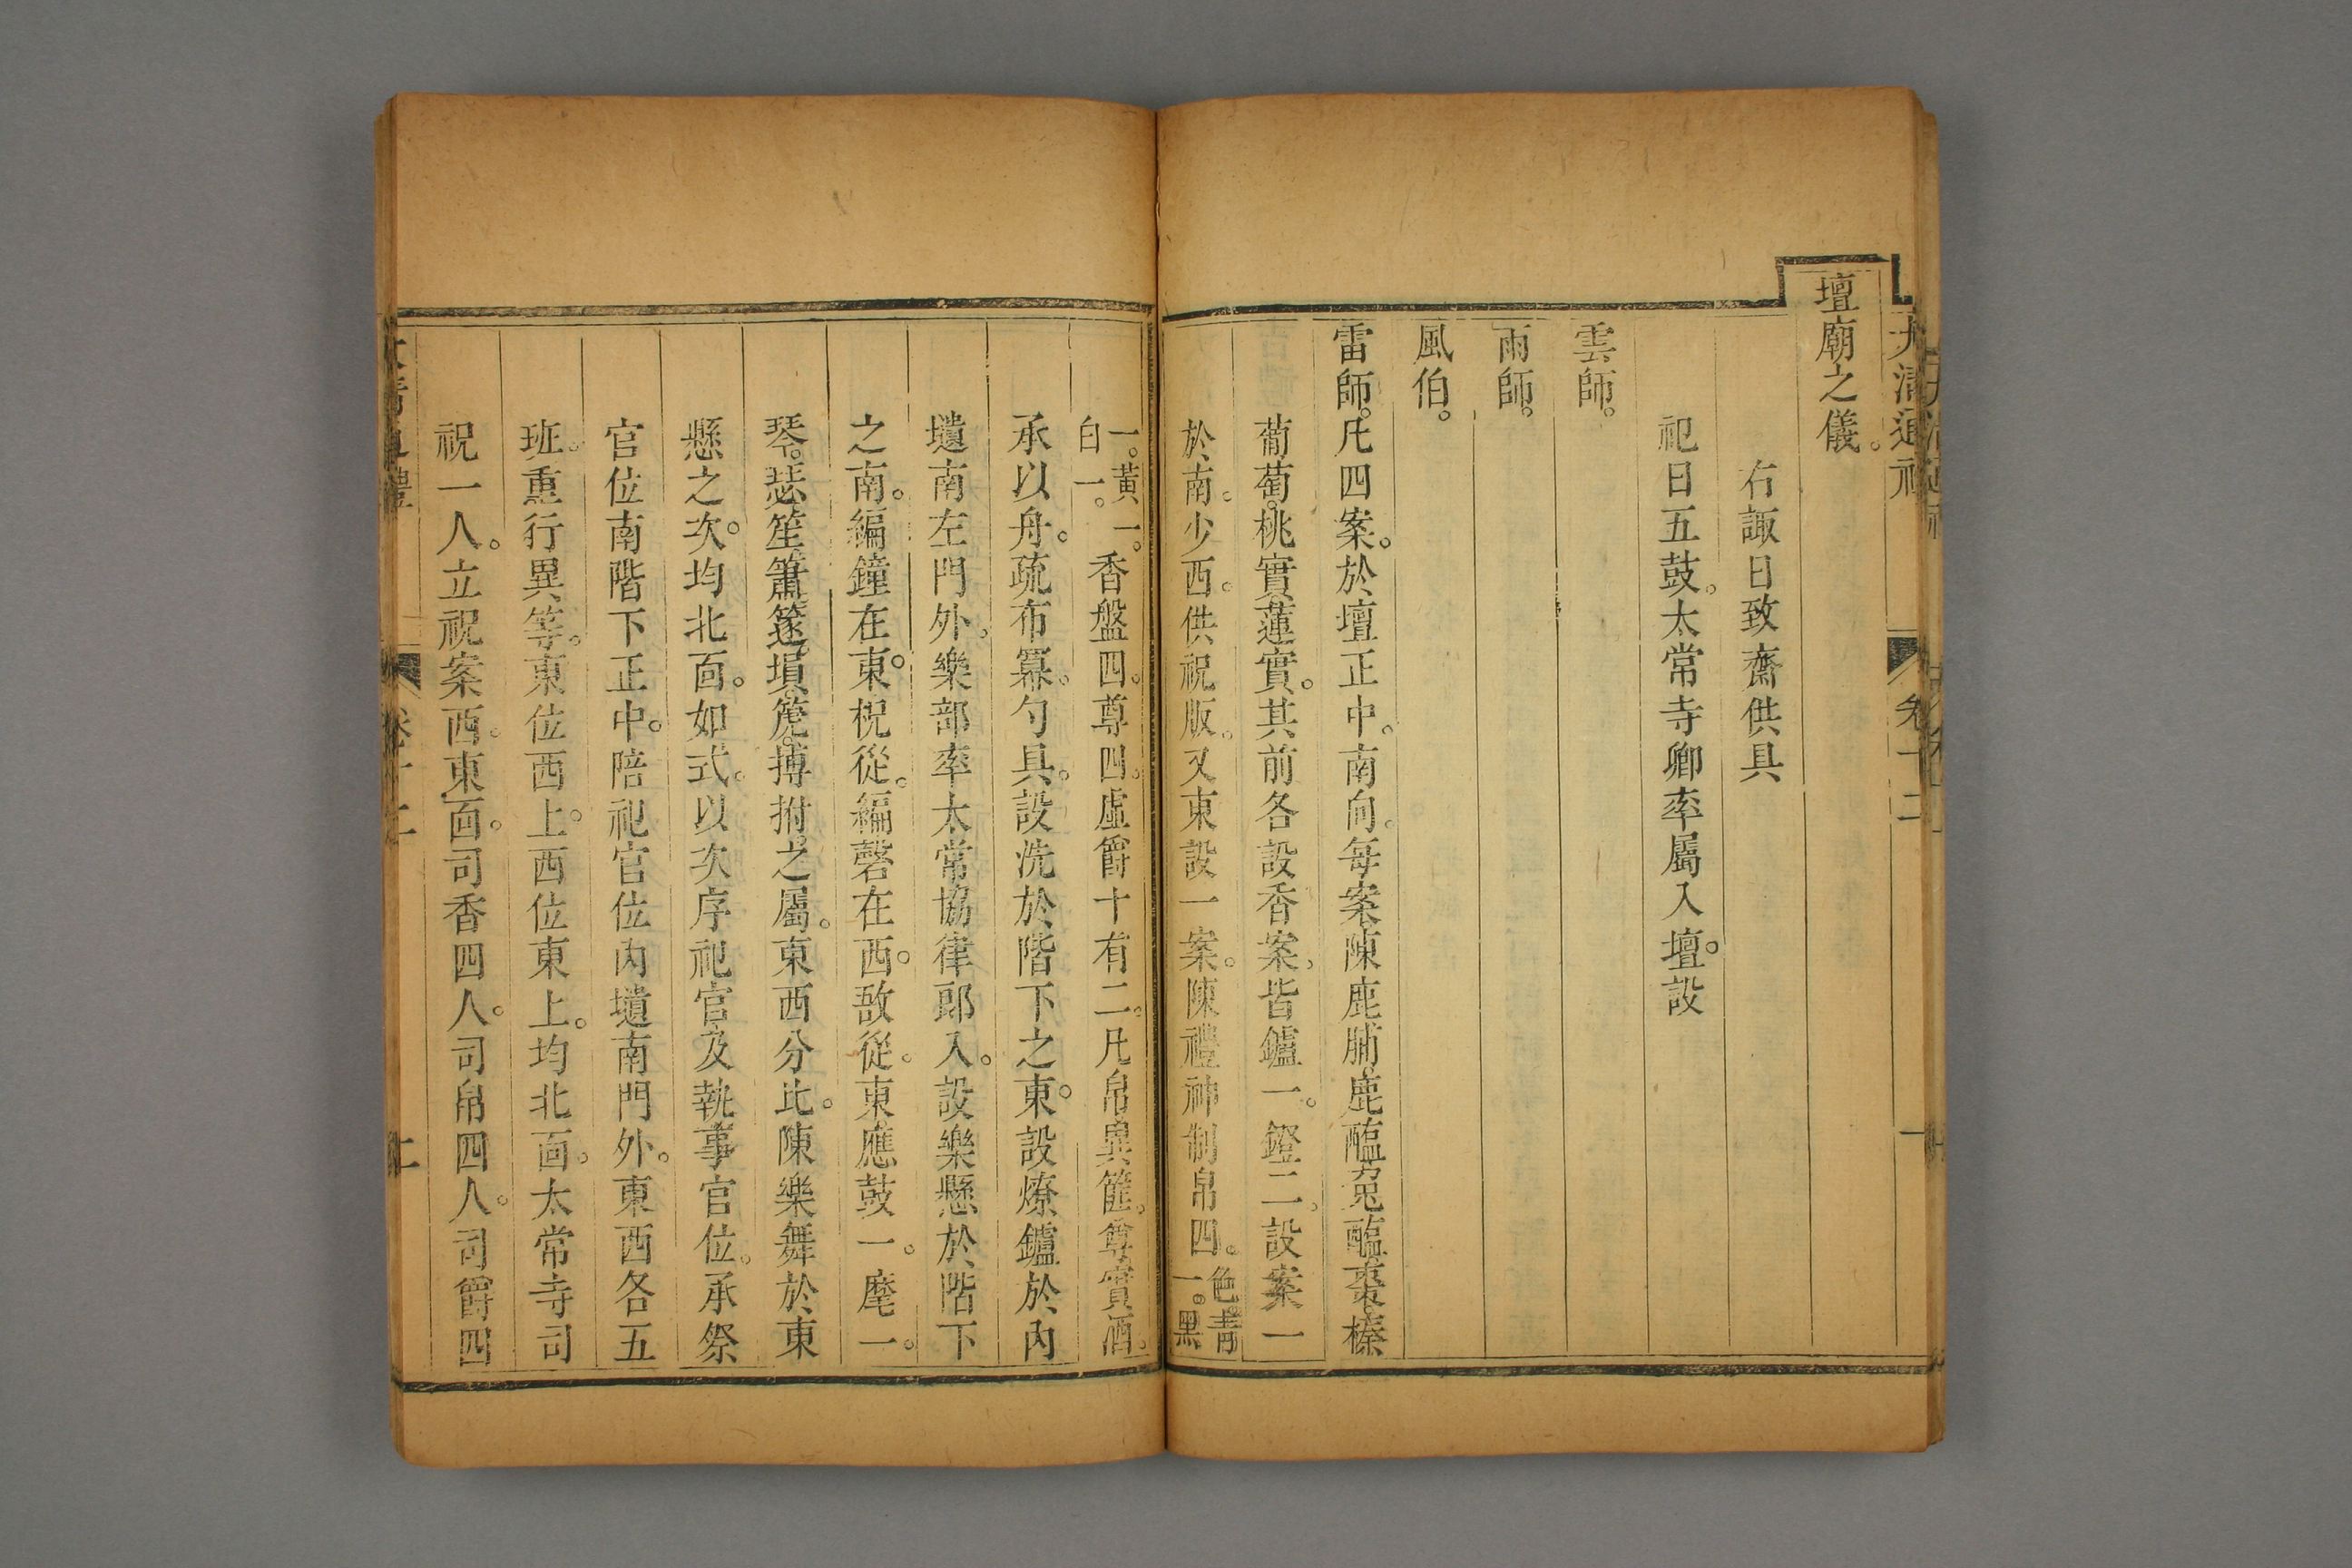 壇廟之儀。
右諏日致齋供具
祀日五鼓。太常寺卿率屬入壇。設
雲師。
雨師。
風伯。
雷師。凡四案。於壇正中。南向。每案陳鹿脯。鹿醢。兔醢。棗。榛。
葡萄。桃實。蓮實。其前各設香案。皆鑪一。鐙二。設案一
於南。少西。供祝版。又東設一案。陳禮神制帛四。色。青一。黑
一。黃一。白一。香盤四。尊四。虛爵十有二。凡帛異篚。尊實酒。
承以舟。疏布冪。勺具。設洗於階下之東。設燎鑪於內
壝南左門外。樂部率太常協律郎入。設樂懸於階下
之南。編鐘在東。柷從。編磬在西。敔從。東應鼓一。麾一。
琴。瑟。笙。簫。篴。塤。箎。搏拊。之屬。東西分比。陳樂舞於東
懸之次。均北面。如式。以次序祀官及執事官位。承祭
官位南階下正中。陪祀官位內壝南門外。東西各五
班。重行異等。東位西上。西位東上。均北面。太常寺司
祝一人。立祝案西。東面。司香四人。司帛四人。司爵四
大清通禮 卷十二 一